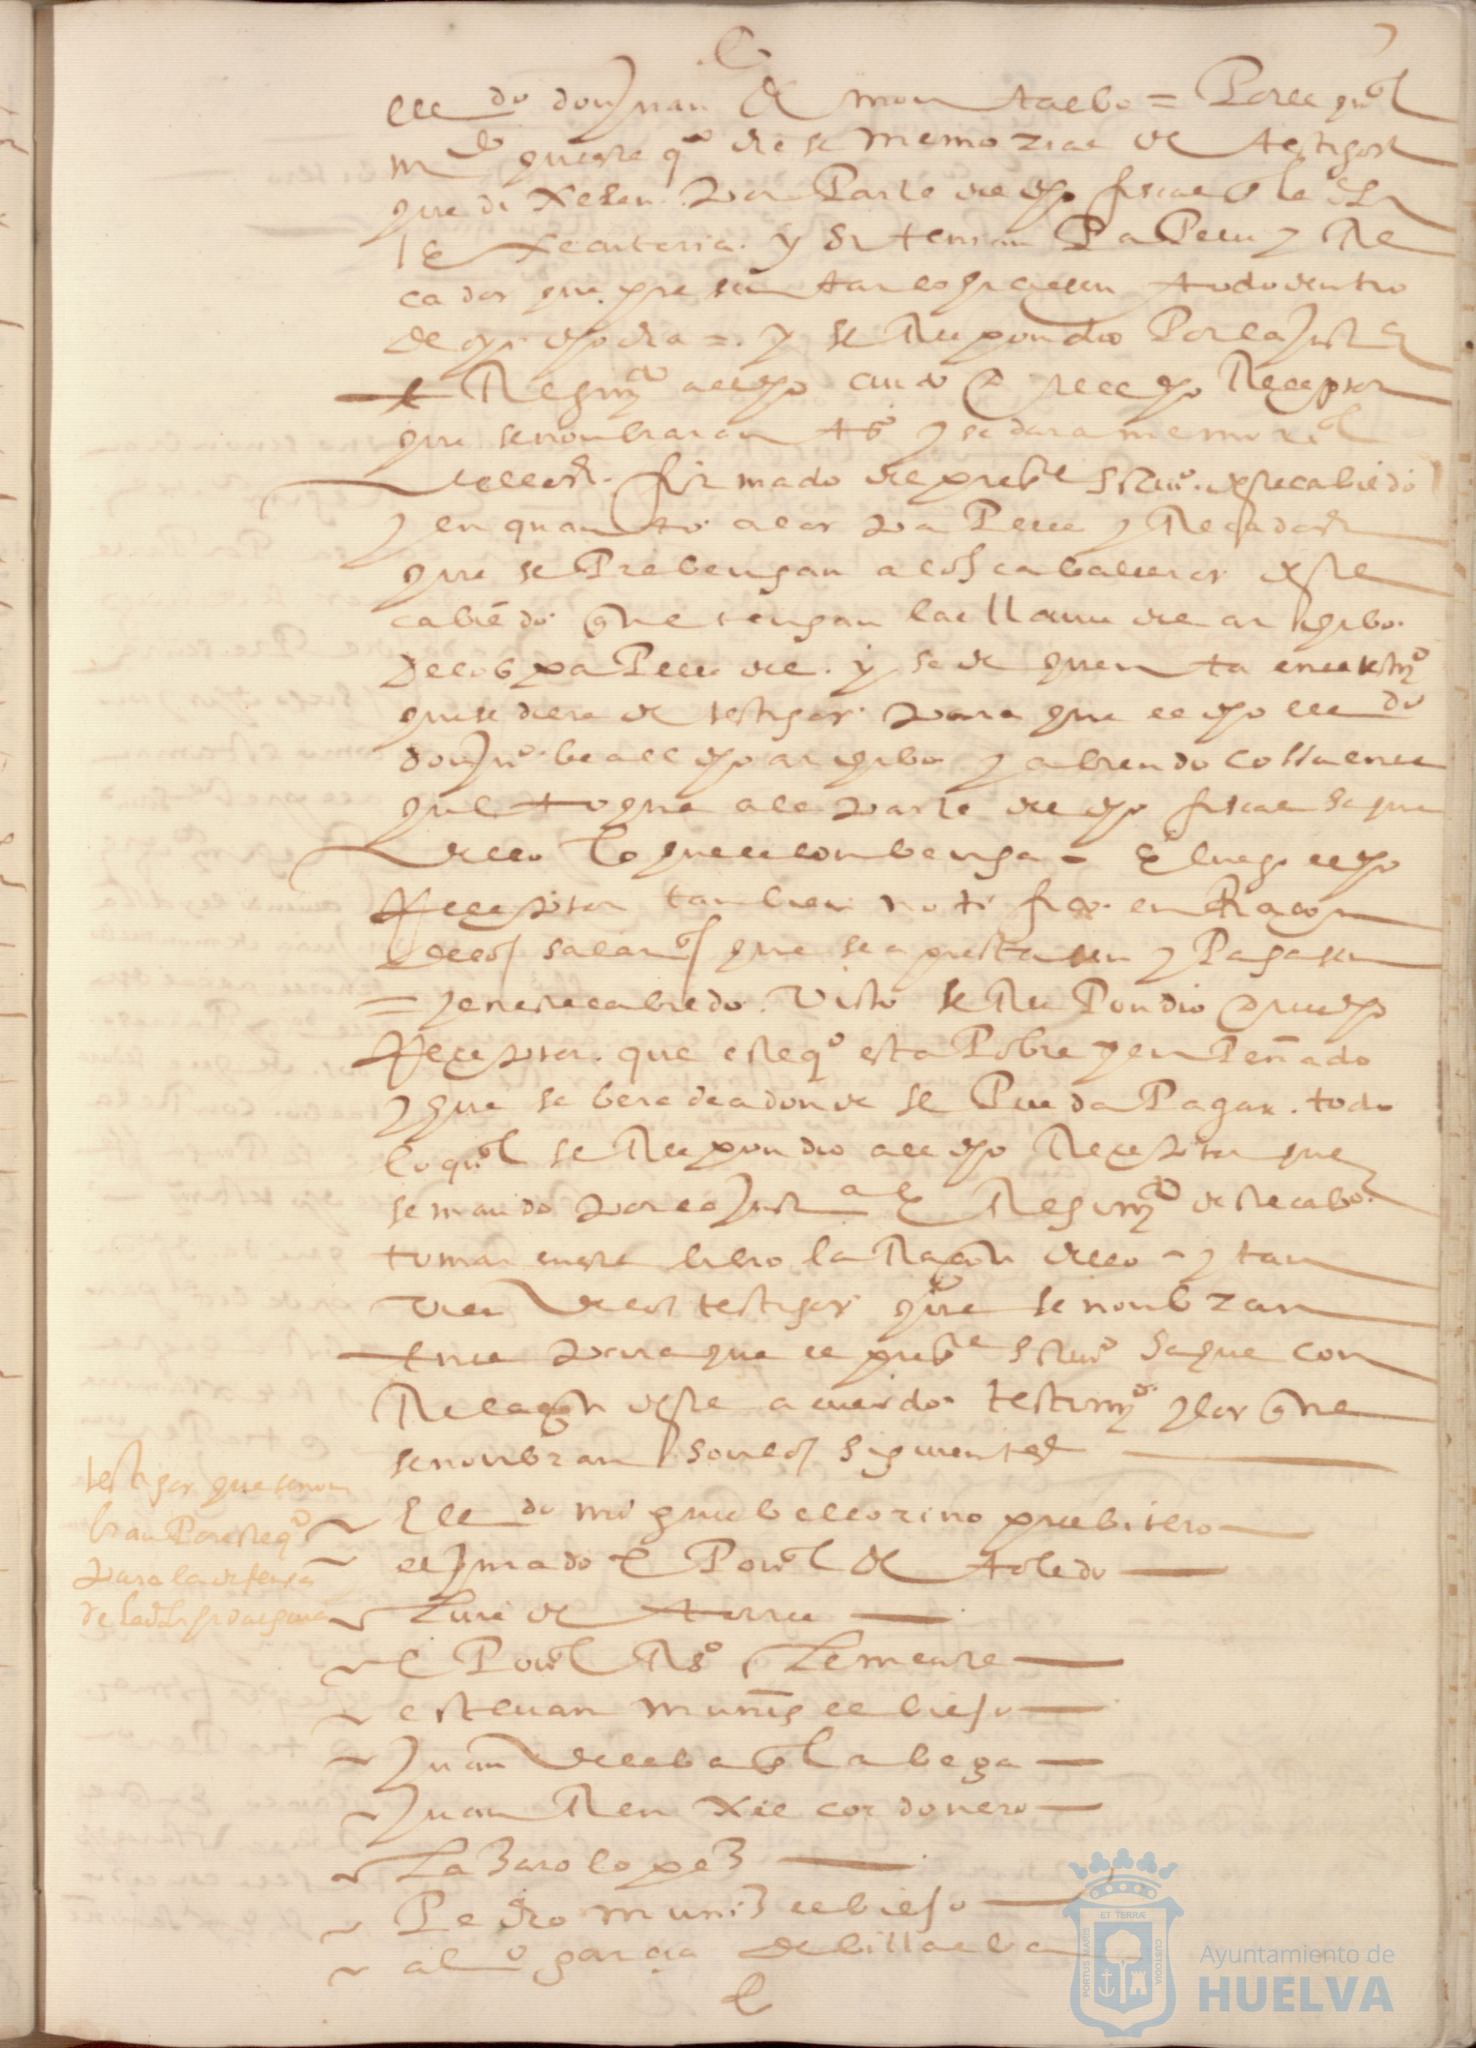 lldo don Juan de montalbo = Por el qual
mdo que este qo diese memorial de testigos
que dixesen por Parte del dho fiscal
executoria. y si tenian Papeles y Re
cados que presentar lo hiciesen todo dentro
de dho dia = y se Respondio Por la Justa
e Regimto al dho Receptor
que se nombraran tos y se dara memorial
dellos. firmado del preste escriuo. deste cabildo
y en quanto a los papeles y Recados
que se Prebengan a los caballeros deste
cabildo que tengan las llaues del archibo
de los papeles del. y se de quenta en el testimo
que se diere de testigos para que el dho lldo
don Juo bea el dho archibo y abiendo cossa en el
que toque a la parte del dho fiscal saque
dello lo que le combenga = E luego el dho
Receptor tambien notifico en Racon
de los salarios que se aprestasen y Pagasen
= y en este cabildo Visto se Respondio al dho
Receptor. que este qo esta Pobre y enPeñado
y que se bera de adonde se Pueda Pagar. todo
lo qual se Respondio al dho Receptor que
se mando por la Justa e Regimto deste cabdo
tomar en este libro la Racon dello = y tan
vien de los testigos que se nonbran
en el para que el preste scriuo saque con
Relacion deste acuerdo testimo y los que
se nonbran son los siguientes
testigos que se non
bran Por este qo
para la defensa
de la
El ldo miguel bellorino presbitero
el Jurado xpoual de toledo
Luis de torres
xpoual Ro Lemeare
esteuan munis el biejo
Juan de la bega
Juan Renxel cordonero
Lazaro lopez
Pedro muniz el biejo
alo garcia de billalba
Ayuntamiento de
HUELVA
PORTUS MARIS
ET TERRÆ
CUSTODIA